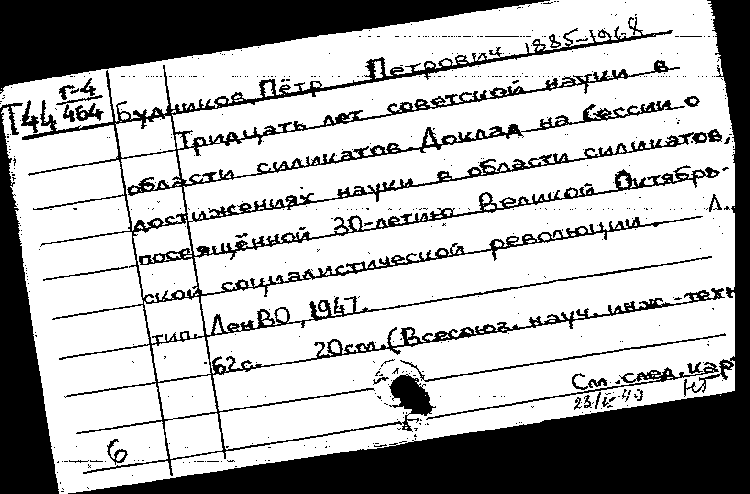 Т44 Г-4/464
Будников, Пётр Петрович, 1885-1968
Тридцать лет советской науки в
области силикатов. Доклад на Сессии о
достижениях науки в области силикатов,
посвящённой 30-летию Великой Октябрь-
ской социалистической революции. Л.,
тип. ЛенВО, 1947.
62с. 20см. (Всесоюз. науч. инж.-техн
См. след. кар
6